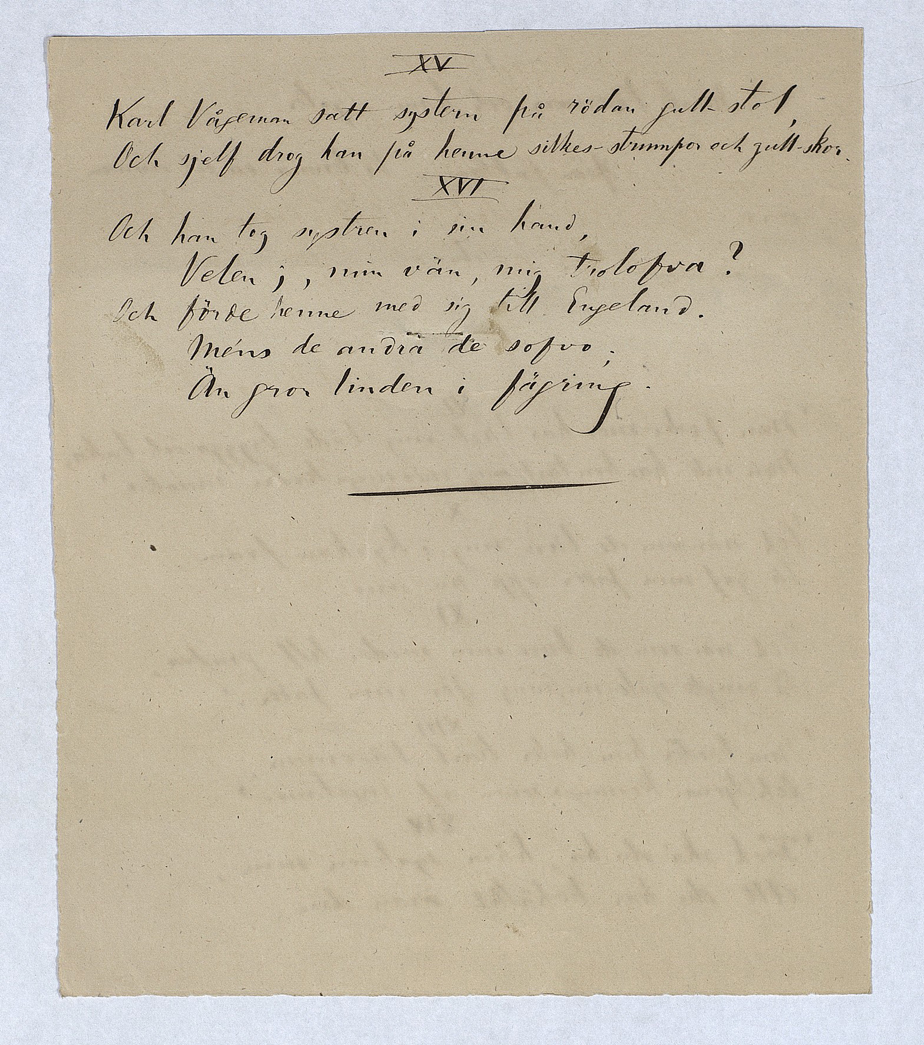 XV
Karl Vågeman satt system på rödan gull-stol,
Och sjelf drog han på henne silkes-strumpor och gull-skor.
XVI
Och han tog systren i sin hand,
Velen j, min vän, mig trolofva?
Och förde henne med sig till Engeland.
Mens de andra de sofvo;
Än gror linden i fägring.